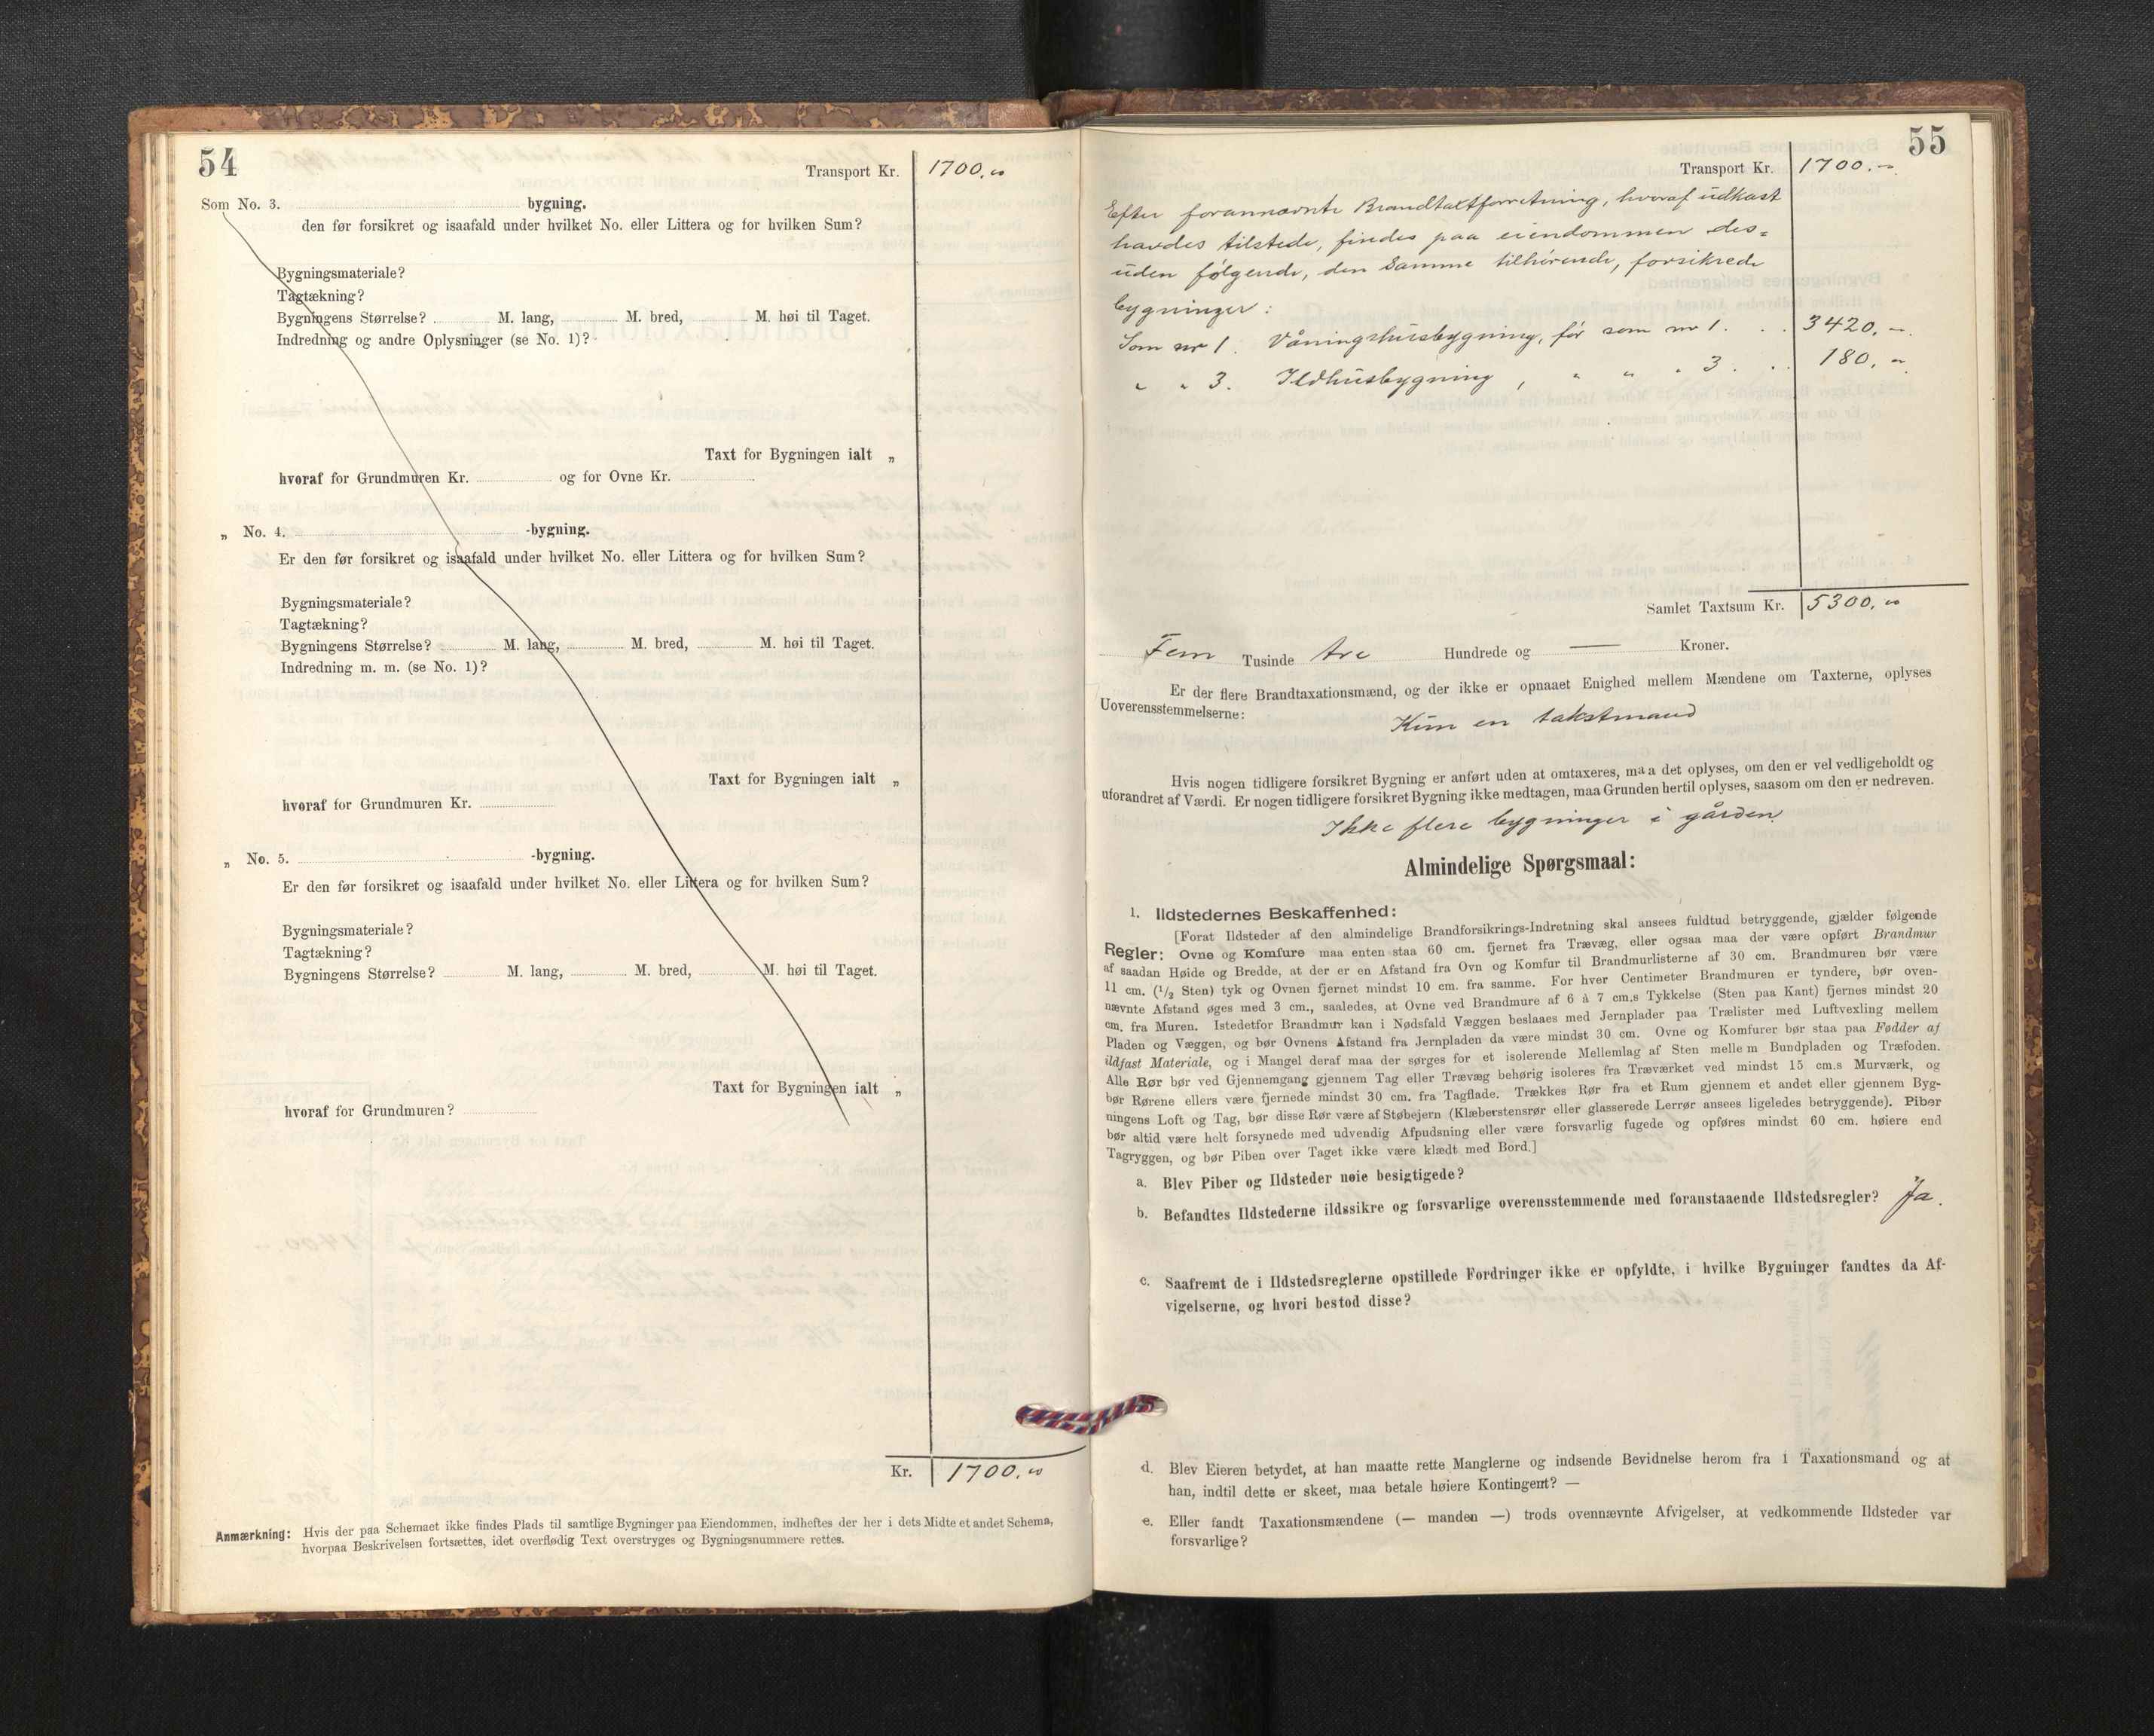 54
Transport Kr. 1700.00
Som No. 3. bygning.
den før forsikret og isaafald under hvilket No. eller Littera og for hvilken Sum?
Bygningsmateriale?
Tagtækning?
Bygningens Størrelse? M. lang, M. bred, M. høi til Taget.
Indredning og andre Oplysninger (se No. 1)?
Taxt for Bygningen ialt „
hvoraf for Grundmuren Kr. og for Ovne Kr.
„ No. 4. -bygning.
Er den før forsikret og isaafald under hvilket No. eller Littera og for hvilken Sum?
Bygningsmateriale?
Tagtækning?
Bygningens Størrelse? M. lang, M. bred, M. høi til Taget.
Indredning m. m. (se No. 1)?
Taxt for Bygningen ialt „
hvoraf for Grundmuren Kr.
„ No. 5. -bygning.
Er den før forsikret og isaafald under hvilket No. eller Littera og for hvilken Sum?
Bygningsmateriale?
Tagtækning?
Bygningens Størrelse? M. lang, M. bred, M. høi til Taget.
Taxt for Bygningen ialt „
hvoraf for Grundmuren?
Kr. 1700.00
Anmærkning: Hvis der paa Schemaet ikke findes Plads til samtlige Bygninger paa Eiendommen, indheftes der her i dets Midte et andet Schema,
hvorpaa Beskrivelsen fortsættes, idet overflødig Text overstryges og Bygningsnummere rettes.
55
Transport Kr. 1700.–
Efter forannævnte Brandtaxtforretning, hvoraf udkast
havdes tilstede, findes paa eiendommen des=
uden følgende, den samme tilhørende, forsikrede
bygninger:
Som nr 1. Våningshusbygning, før som nr 1. . . 3420.–
„ „ 3. Ildhusbygning, „ „ „ 3. . . 180.–
Samlet Taxtsum Kr. 5300.00
Fem Tusinde tre Hundrede og — Kroner.
Er der flere Brandtaxationsmænd, og der ikke er opnaaet Enighed mellem Mændene om Taxterne, oplyses
Uoverensstemmelserne:
Kun en takstmand
Hvis nogen tidligere forsikret Bygning er anført uden at omtaxeres, maa det oplyses, om den er vel vedligeholdt og
uforandret af Værdi. Er nogen tidligere forsikret Bygning ikke medtagen, maa Grunden hertil oplyses, saasom om den er nedreven.
Ikke flere bygninger i gården
Almindelige Spørgsmaal:
1. Ildstedernes Beskaffenhed:
[Forat Ildsteder af den almindelige Brandforsikrings-Indretning skal ansees fuldtud betryggende, gjælder følgende
Regler: Ovne og Komfure maa enten staa 60 cm. fjernet fra Trævæg, eller ogsaa maa der være opført Brandmur
af saadan Høide og Bredde, at der er en Afstand fra Ovn og Komfur til Brandmurlisterne af 30 cm. Brandmuren bør være
11 cm. (½ Sten) tyk og Ovnen fjernet mindst 10 cm. fra samme. For hver Centimeter Brandmuren er tyndere, bør oven-
nævnte Afstand øges med 3 cm., saaledes, at Ovne ved Brandmure af 6 à 7 cm.s Tykkelse (Sten paa Kant) fjernes mindst 20
cm. fra Muren. Istedetfor Brandmur kan i Nødsfald Væggen beslaaes med Jernplader paa Trælister med Luftvexling mellem
Pladen og Væggen, og bør Ovnens Afstand fra Jernpladen da være mindst 30 cm. Ovne og Komfurer bør staa paa Fødder af
ildfast Materiale, og i Mangel deraf maa der sørges for et isolerende Mellemlag af Sten mellem Bundpladen og Træfoden.
Alle Rør bør ved Gjennemgang gjennem Tag eller Trævæg behørig isoleres fra Træværket ved mindst 15 cm.s Murværk, og
bør Rørene ellers være fjernede mindst 30 cm. fra Tagflade. Trækkes Rør fra et Rum gjennem et andet eller gjennem Byg-
ningens Loft og Tag, bør disse Rør være af Støbejern (Klæberstensrør eller glasserede Lerrør ansees ligeledes betryggende). Piber
bør altid være helt forsynede med udvendig Afpudsning eller være forsvarlig fugede og opføres mindst 60 cm. høiere end
Tagryggen, og bør Piben over Taget ikke være klædt med Bord.]
a. Blev Piber og Ildsteder nøie besigtigede?
b. Befandtes Ildstederne ildssikre og forsvarlige overensstemmende med foranstaaende Ildstedsregler? Ja.
c. Saafremt de i Ildstedsreglerne opstillede Fordringer ikke er opfyldte, i hvilke Bygninger fandtes da Af-
vigelserne, og hvori bestod disse?
d. Blev Eieren betydet, at han maatte rette Manglerne og indsende Bevidnelse herom fra 1 Taxationsmand og at
han, indtil dette er skeet, maa betale høiere Kontingent? —
e. Eller fandt Taxationsmændene (— manden —) trods ovennævnte Afvigelser, at vedkommende Ildsteder var
forsvarlige?